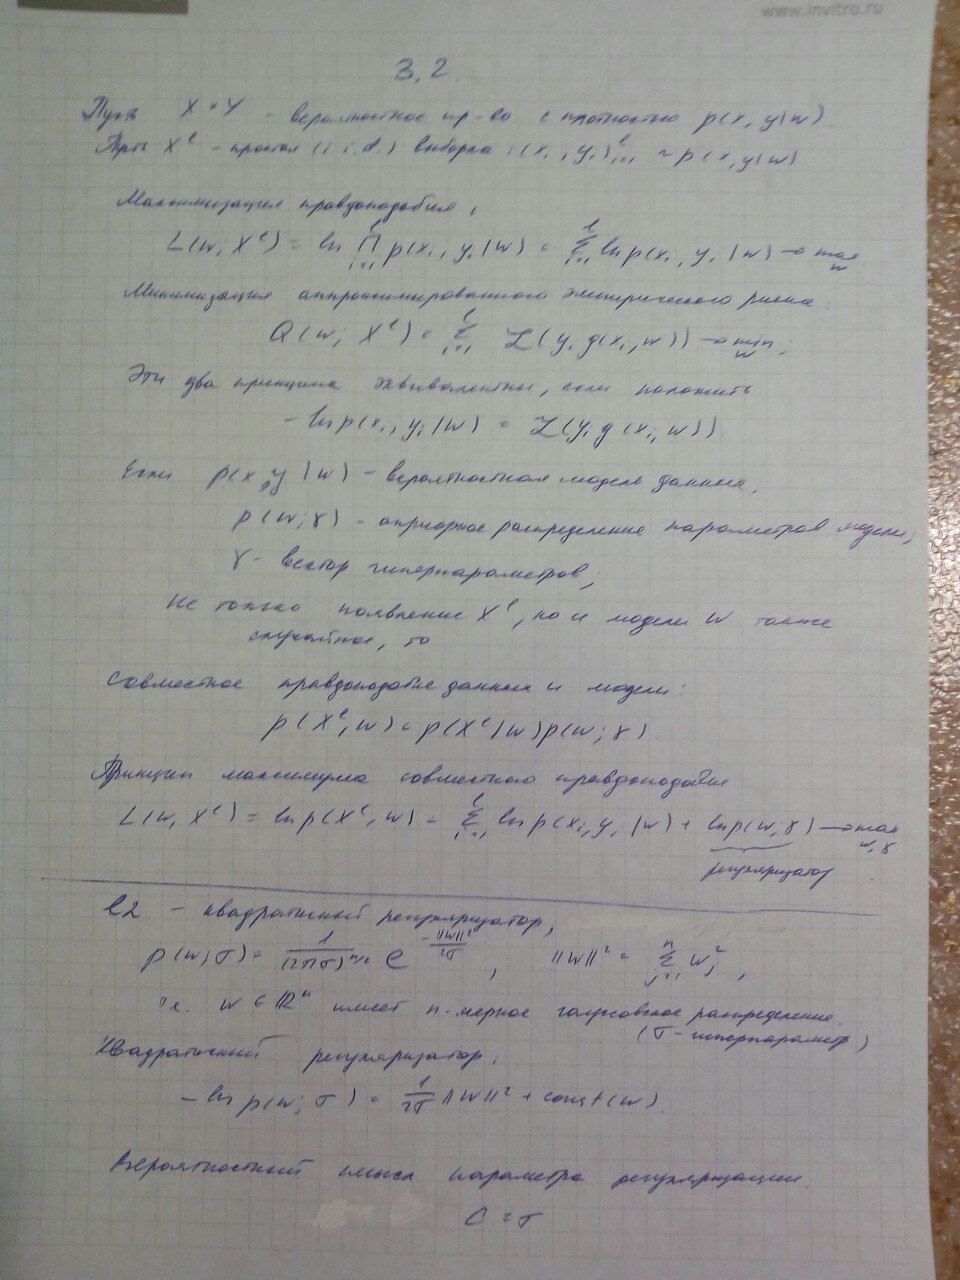 www.invitro.ru
3.2.
Пусть X × Y - вероятностное пр-во с плотностью p(x, y|w)
Пусть X^l - простая (i.i.d.) выборка: (x_i, y_i)_{i=1}^l ~ p(x, y|w)
Максимизация правдоподобия:
L(w; X^l) = ln ∏_{i=1}^l p(x_i, y_i|w) = ∑_{i=1}^l ln p(x_i, y_i|w) → max_w
Минимизация аппроксимированного эмпирического риска:
Q(w; X^l) = ∑_{i=1}^l ℒ(y_i g(x_i, w)) → min_w;
Эти два принципа эквивалентны, если положить
- ln p(x_i, y_i|w) = ℒ(y_i g(x_i, w))
Если p(x, y|w) - вероятностная модель данных,
p(w; γ) - априорное распределение параметров модели,
γ - вектор гиперпараметров;
Не только появление X^l, но и модели w также
случайное, то
Совместное правдоподобие данных и модели:
p(X^l, w) = p(X^l|w) p(w; γ)
Принцип максимума совместного правдоподобия
L(w, X^l) = ln p(X^l, w) = ∑_{i=1}^l ln p(x_i, y_i|w) + ln p(w; γ) → max_{w,γ}
регуляризатор
l2 - квадратичный регуляризатор,
p(w; σ) = 1/(2πσ)^{n/2} e^{-||w||²/2σ}, ||w||² = ∑_{j=1}^n w_j²,
т.е. w ∈ ℝ^n имеет n-мерное гауссовское распределение.
(σ - гиперпараметр)
Квадратичный регуляризатор:
- ln p(w; σ) = 1/2σ ||w||² + const(w)
Вероятностный смысл параметра регуляризации
C = σ